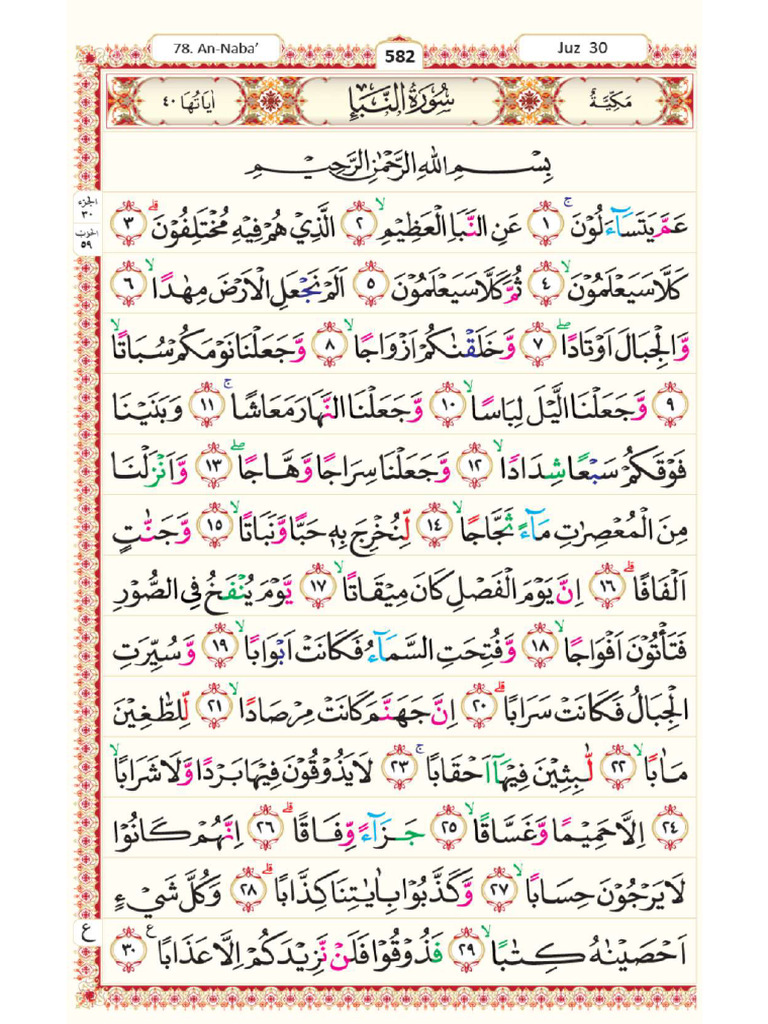 78. An-Naba’
582
Juz 30
اٰيَاتُهَا ٤٠
سُوْرَةُ النَّبَاِ
مَكِّيَّةٌ
بِسْمِ اللهِ الرَّحْمٰنِ الرَّحِيْمِ
الجزء
٣٠
الحزب
٥٩
عَمَّ يَتَسَاۤءَلُوْنَۚ ١ عَنِ النَّبَاِ الْعَظِيْمِۙ ٢ الَّذِيْ هُمْ فِيْهِ مُخْتَلِفُوْنَۗ ٣
كَلَّا سَيَعْلَمُوْنَۙ ٤ ثُمَّ كَلَّا سَيَعْلَمُوْنَ ٥ اَلَمْ نَجْعَلِ الْاَرْضَ مِهٰدًاۙ ٦
وَّالْجِبَالَ اَوْتَادًاۖ ٧ وَّخَلَقْنٰكُمْ اَزْوَاجًاۙ ٨ وَّجَعَلْنَا نَوْمَكُمْ سُبَاتًاۙ
٩ وَّجَعَلْنَا الَّيْلَ لِبَاسًاۙ ١٠ وَّجَعَلْنَا النَّهَارَ مَعَاشًاۚ ١١ وَبَنَيْنَا
فَوْقَكُمْ سَبْعًا شِدَادًاۙ ١٢ وَّجَعَلْنَا سِرَاجًا وَّهَّاجًاۖ ١٣ وَّاَنْزَلْنَا
مِنَ الْمُعْصِرٰتِ مَاۤءً ثَجَّاجًاۙ ١٤ لِّنُخْرِجَ بِهٖ حَبًّا وَّنَبَاتًاۙ ١٥ وَّجَنّٰتٍ
اَلْفَافًاۗ ١٦ اِنَّ يَوْمَ الْفَصْلِ كَانَ مِيْقَاتًاۙ ١٧ يَّوْمَ يُنْفَخُ فِى الصُّوْرِ
فَتَأْتُوْنَ اَفْوَاجًاۙ ١٨ وَّفُتِحَتِ السَّمَاۤءُ فَكَانَتْ اَبْوَابًاۙ ١٩ وَّسُيِّرَتِ
الْجِبَالُ فَكَانَتْ سَرَابًاۗ ٢٠ اِنَّ جَهَنَّمَ كَانَتْ مِرْصَادًاۙ ٢١ لِّلطّٰغِيْنَ
مَاٰبًاۙ ٢٢ لّٰبِثِيْنَ فِيْهَآ اَحْقَابًاۚ ٢٣ لَا يَذُوْقُوْنَ فِيْهَا بَرْدًا وَّلَا شَرَابًاۙ
٢٤ اِلَّا حَمِيْمًا وَّغَسَّاقًاۙ ٢٥ جَزَاۤءً وِّفَاقًاۗ ٢٦ اِنَّهُمْ كَانُوْا
لَا يَرْجُوْنَ حِسَابًاۙ ٢٧ وَّكَذَّبُوْا بِاٰيٰتِنَا كِذَّابًاۗ ٢٨ وَكُلَّ شَيْءٍ
اَحْصَيْنٰهُ كِتٰبًاۙ ٢٩ فَذُوْقُوْا فَلَنْ نَّزِيْدَكُمْ اِلَّا عَذَابًا ࣖ ٣٠
ع